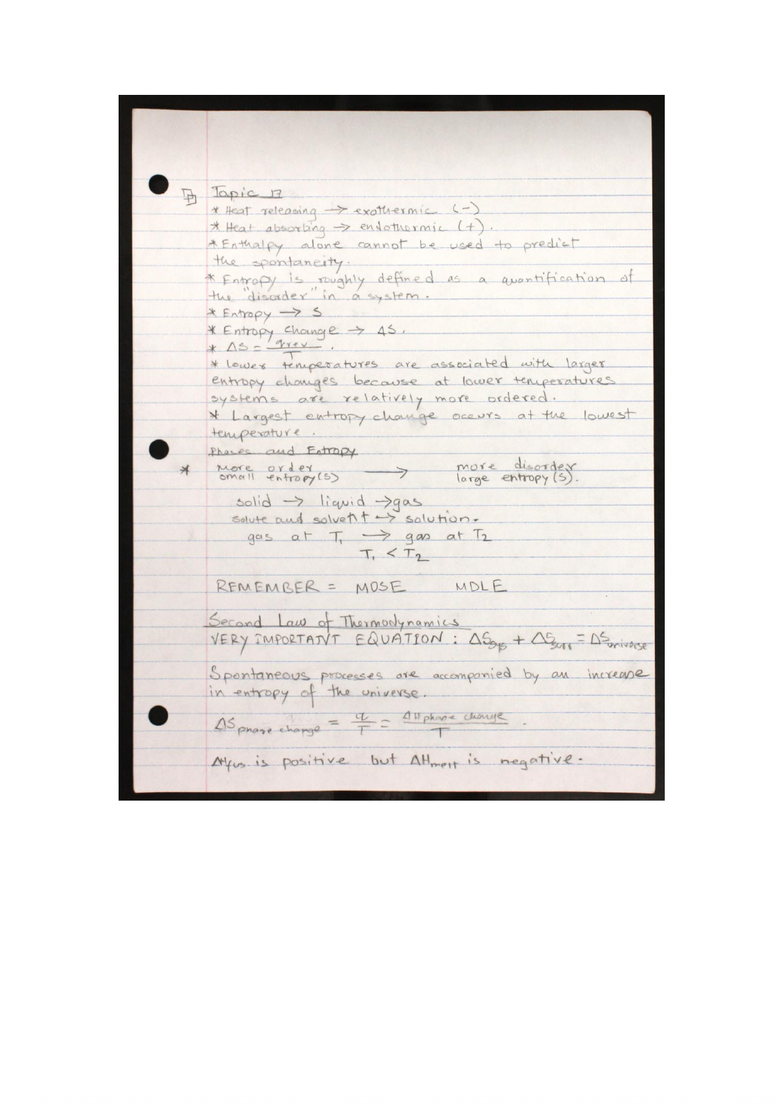 Topic 17
* Heat releasing → exothermic (-)
* Heat absorbing → endothermic (+).
* Enthalpy alone cannot be used to predict
the spontaneity.
* Entropy is roughly defined as a quantification of
the "disorder" in a system.
* Entropy → S
* Entropy change → ΔS.
* ΔS = qrev/T.
* Lower temperatures are associated with larger
entropy changes because at lower temperatures
systems are relatively more ordered.
* Largest entropy change occurs at the lowest
temperature.
Phases and Entropy
* more order → more disorder
small entropy(S) large entropy(S).
solid → liquid → gas
solute and solvent → solution.
gas at T₁ → gas at T₂
T₁ < T₂
REMEMBER = MOSE MDLE
Second Law of Thermodynamics
VERY IMPORTANT EQUATION : ΔSsys + ΔSsurr = ΔSuniverse
Spontaneous processes are accompanied by an increase
in entropy of the universe.
ΔS phase change = q/T = ΔH phase change/T.
ΔHfus is positive but ΔHmelt is negative.